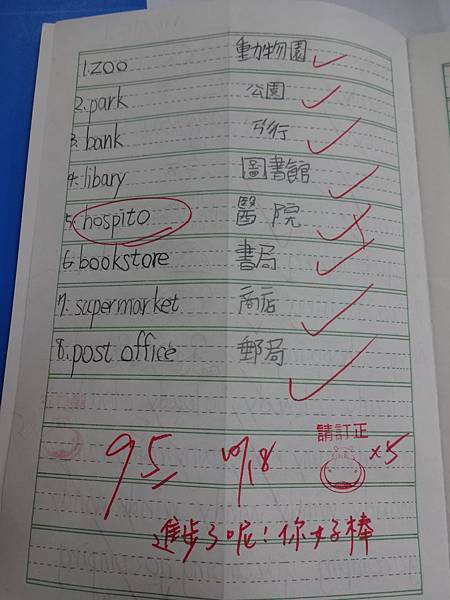 1. zoo 動物園
2. park 公園
3. bank 引行
4. libary 圖書館
5. hospito 醫院
6. bookstore 書局
7. supermarket 商店
8. post office 郵局
請訂正
95 10/18 x5
進步了呢！你好棒